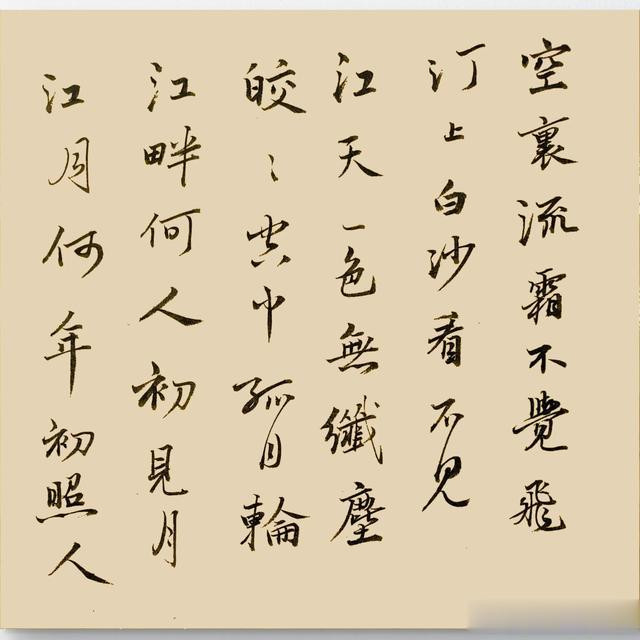 空裏流霜不覺飛
汀上白沙看不見
江天一色無纖塵
皎〻空中孤月輪
江畔何人初見月
江月何年初照人